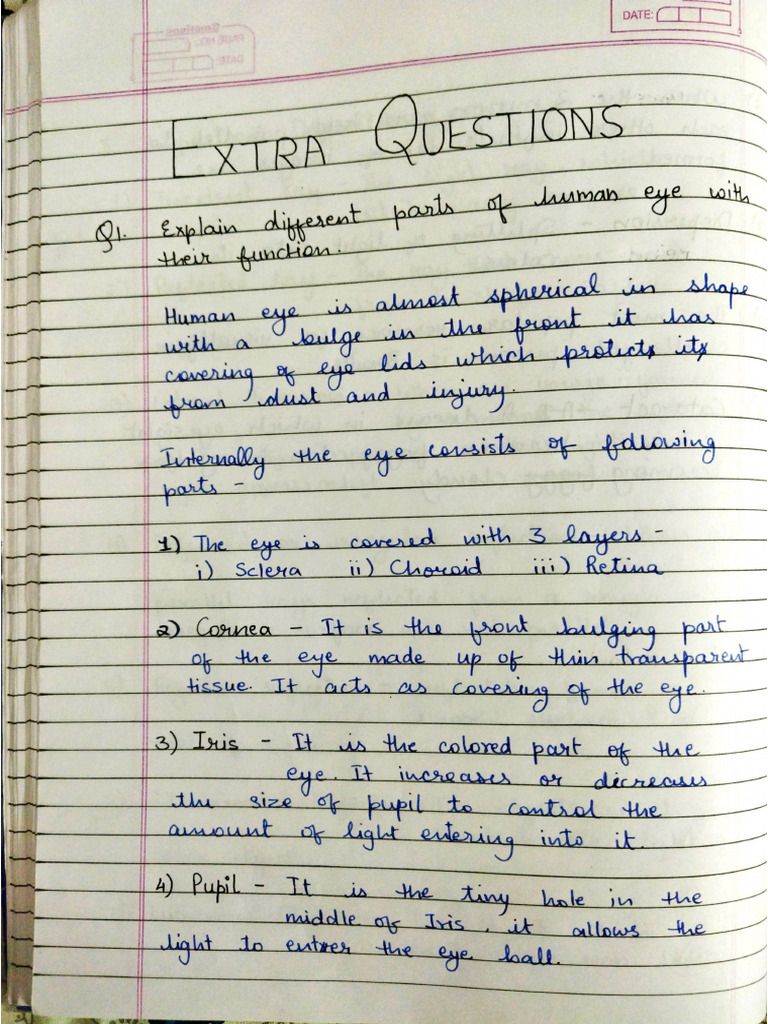 DATE:
EXTRA QUESTIONS
Q1. Explain different parts of human eye with
their function.
Human eye is almost spherical in shape
with a bulge in the front it has
covering of eye lids which protects its
from dust and injury.
Internally the eye consists of following
parts -
1) The eye is covered with 3 layers -
i) Sclera ii) Choroid iii) Retina
2) Cornea - It is the front bulging part
of the eye made up of thin transparent
tissue. It acts as covering of the eye.
3) Iris - It is the colored part of the
eye. It increases or dicreases
the size of pupil to control the
amount of light entering into it.
4) Pupil - It is the tiny hole in the
middle of Iris. it allows the
light to enter the eye ball.